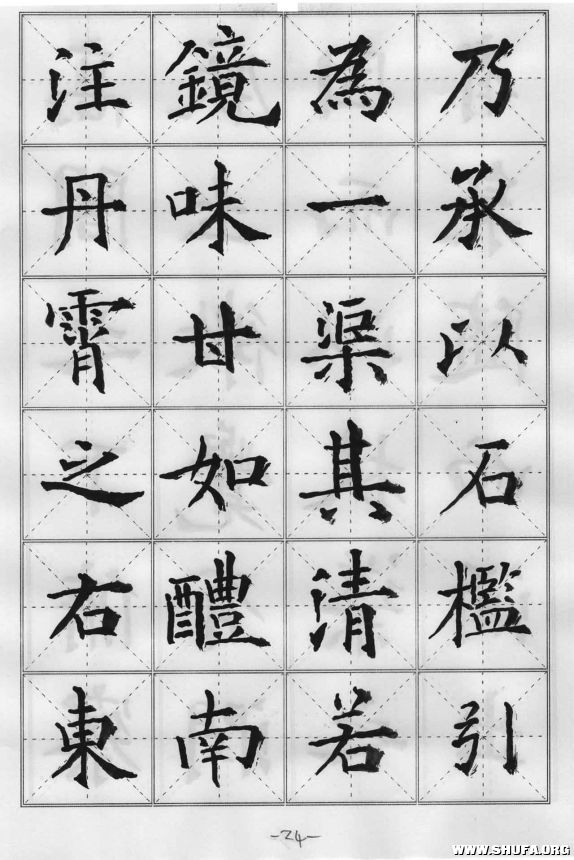 乃承以石檻引
為一渠其清若
鏡味甘如醴南
注丹霄之右東
-24-
WWW.SHUFA.ORG